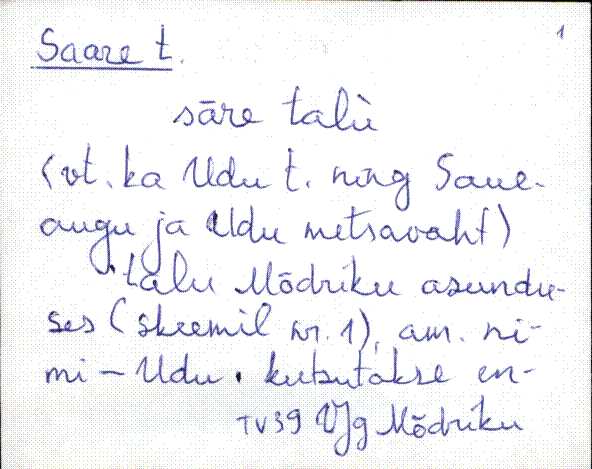 1
Saare t.
sāre talù
(vt. ka Udu t. ning Saue-
augu ja Udu metsavaht)
talu Mõdriku asundu-
ses (skeemil nr. 1), am. ni-
mi – Udu. kutsutakse en-
TV39 VJg Mõdriku